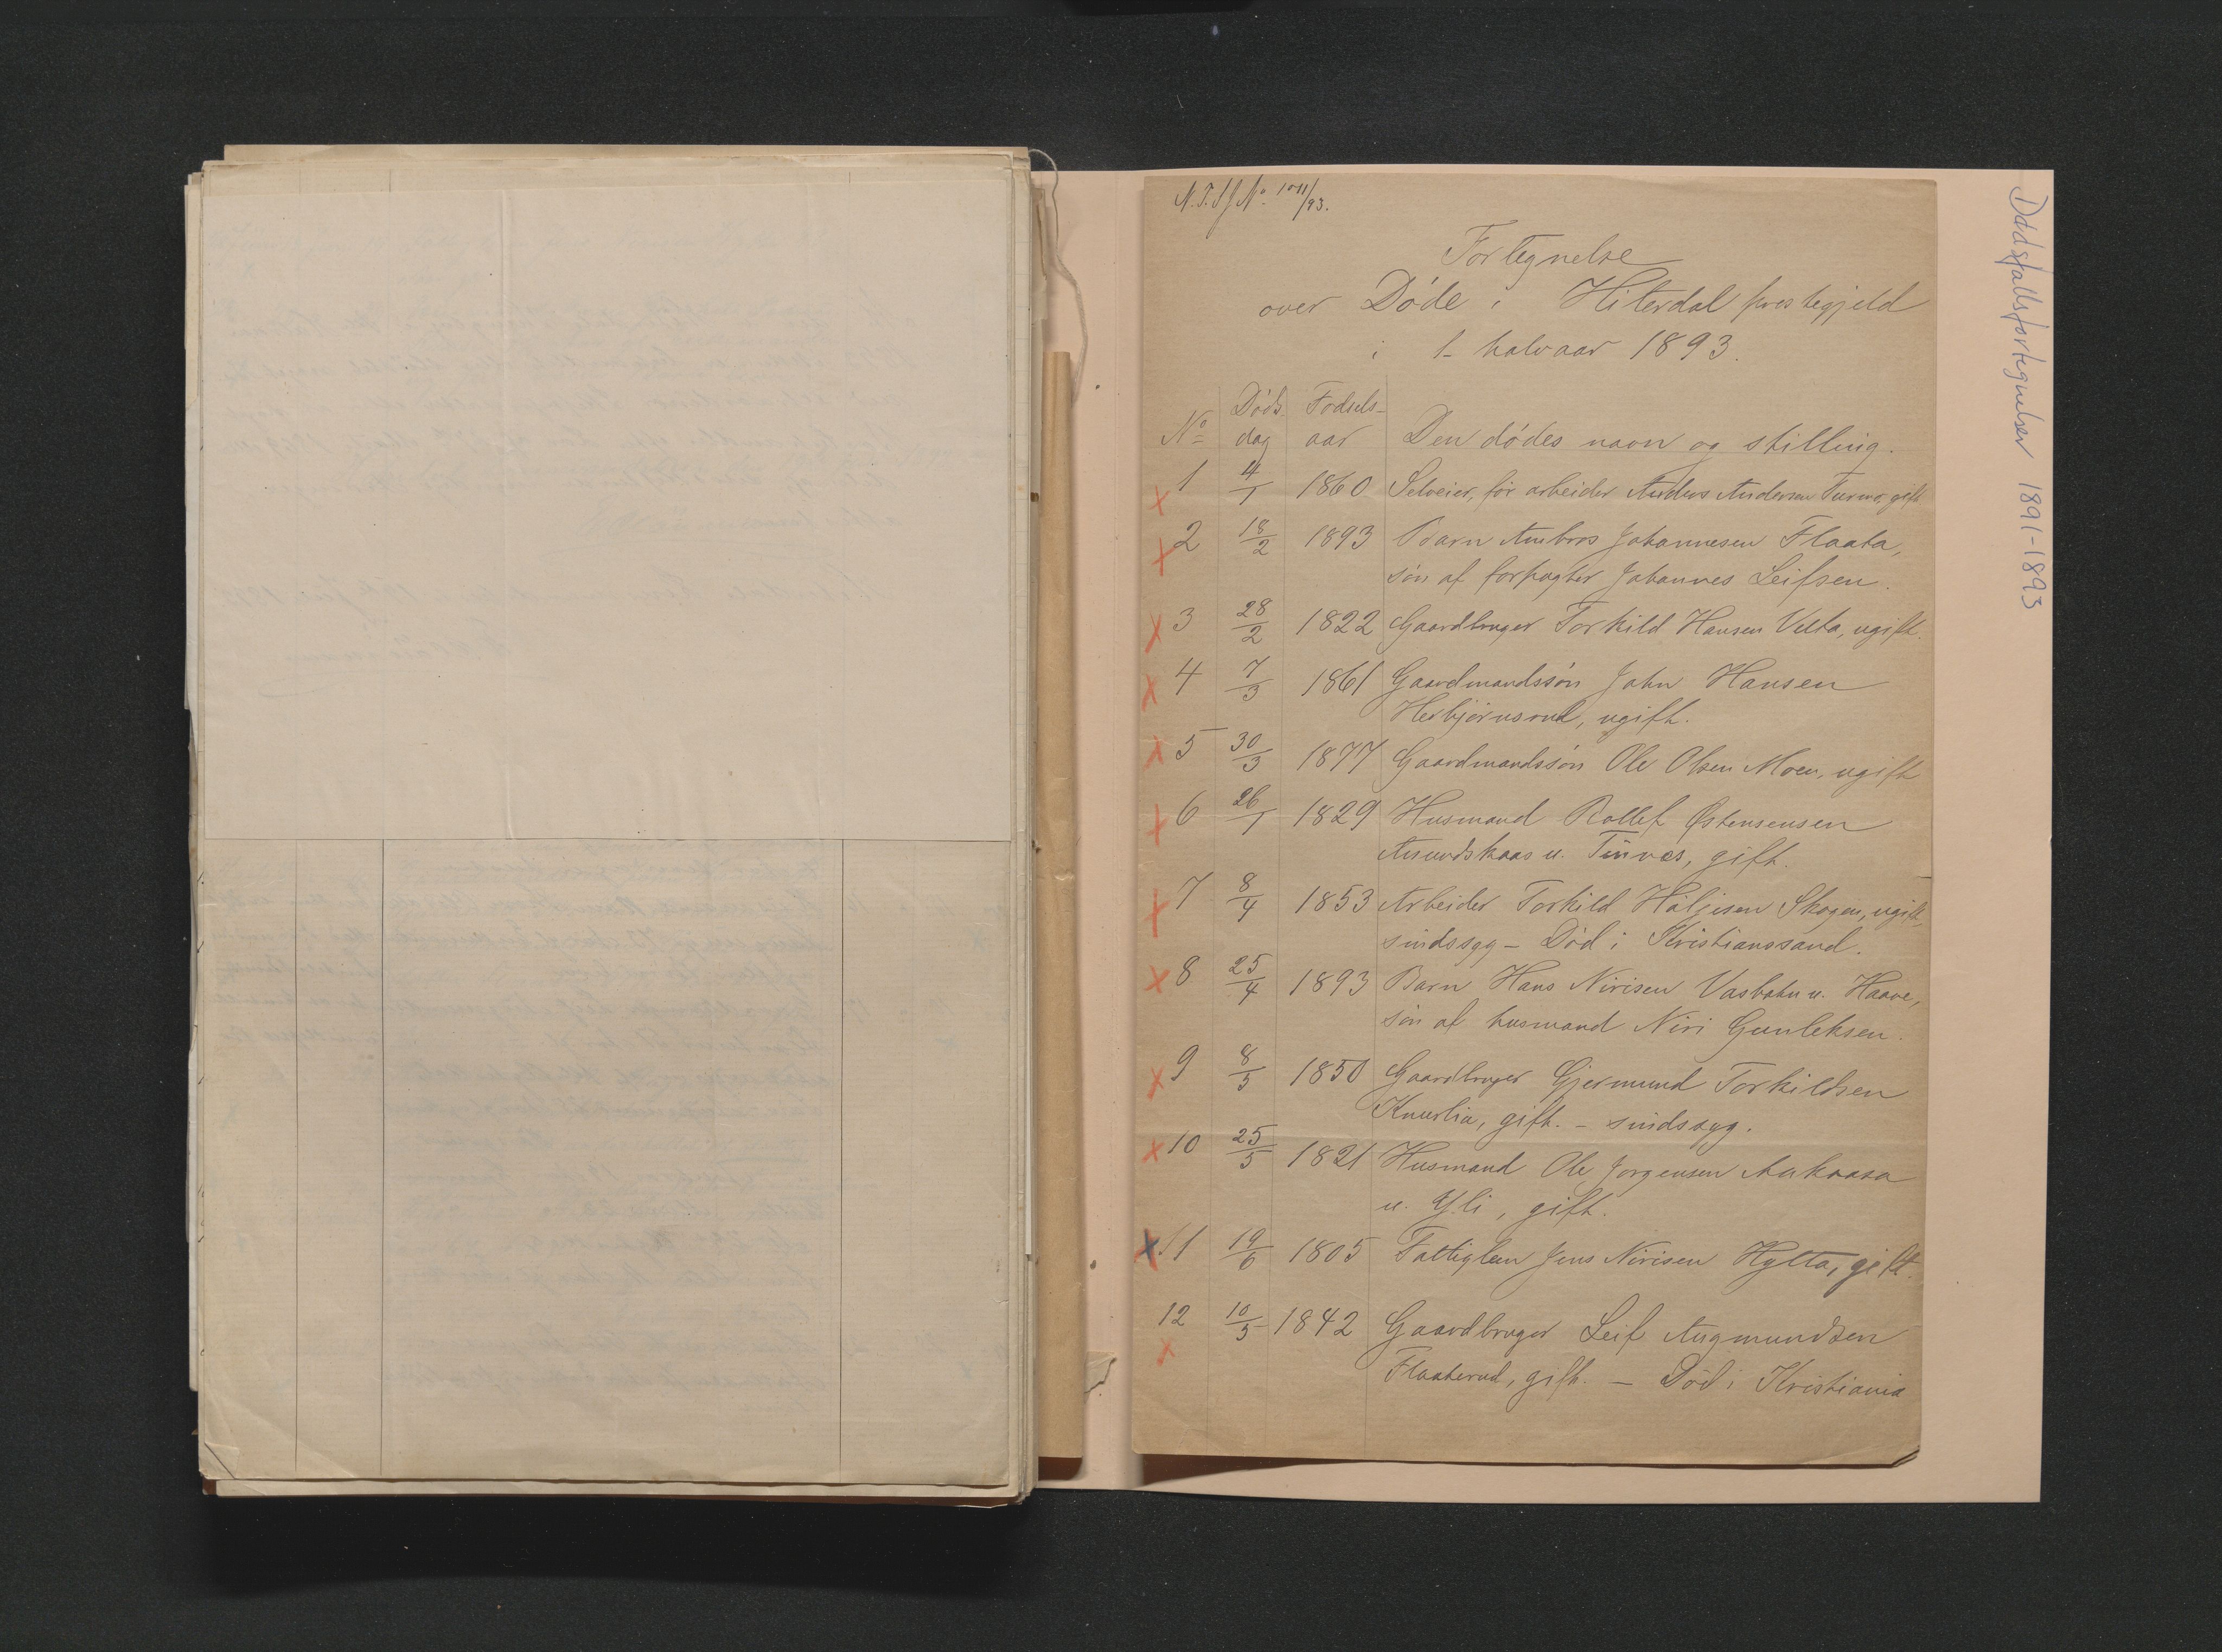 N.T.S J No. 1011/93.
Fortegnelse
over Døde i Hiterdal prestegjeld
i 1. halvaar 1893.
No Døds dag Fødsels- aar Den dødes navn og stilling.
1 4/1 1860 Selveier, før arbeider Anders Andersen Turmo, gift
2 18/2 1893 Barn Ambros Johannesen Flaata,
søn af forpagter Johannes Leifsen.
3 28/2 1822 Gaardbruger Torkild Hansen Velta, ugift.
4 7/3 1861 Gaardmandssøn John Hansen
Herbjørnsrud, ugift.
5 30/3 1877 Gaardmandssøn Ole Olsen Moen, ugift
6 26/1 1829 Husmand Rollef Østensensen
Amundskaas u. Tinnes, gift.
7 8/4 1853 Arbeider Torkild Høljesen Skogen, ugift,
sindssyg – Død i Kristianssand.
8 25/4 1893 Barn Hans Nirisen Vasbakn u. Haave,
søn af husmand Niri Gunleksen.
9 8/5 1850 Gaardbruger Gjermund Torkildsen
Knurlia, gift. – sindssyg.
10 25/5 1821 Husmand Ole Jørgensen Aakaasa
u. Yli, gift.
11 19/6 1805 Fattiglem Jens Nirisen Hytta, gift.
12 10/5 1842 Gaardbruger Leif Augmundsen
Flaaterud, gift. – Død i Kristiania
Dødsfallsfortegnelser 1891-1893